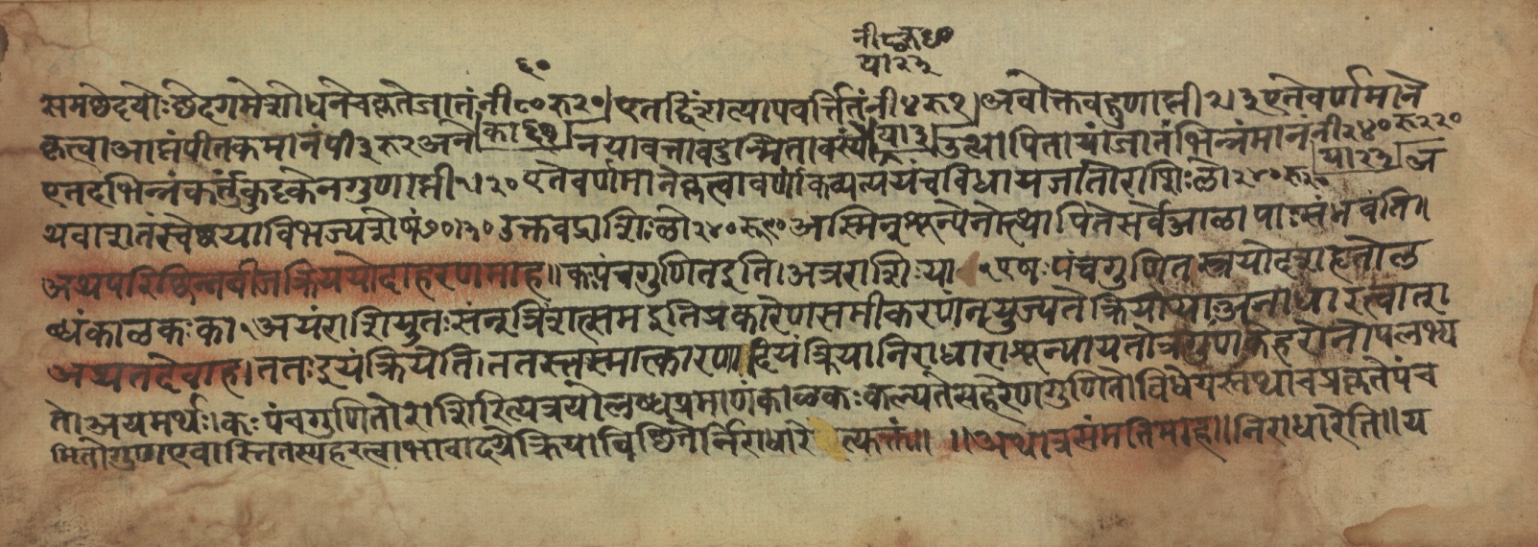 नी८ रू ६०
या २३
६०
समछेदयोः छेदगमेशोधनेचकृतेजातंनी ८० रू २०। एतद्विंशत्यापवर्त्तितंनी ४ रू १। अत्रोक्तवद्गुणाप्ती २। ३ एतेवर्णमाने
कृत्वाआप्तंपीतकमानंपी ३ रू २ अने नयावत्तावदुन्मितावस्यां उत्थापितायांजातंभिन्नंमानंनी २४० रू २२०
का ६१
या ३
या २३
एतदभिन्नंकर्त्तुकुट्टकेनगुणाप्ती १। २० एतेवर्णमानेकृत्वावर्णांकव्यत्ययंचविधायजातोराशिः लो २४० रू २० अ
थवाशतंस्वेष्टयाविभज्यशेषं ७०। ३० उक्तवद्राशिः लो २४० रू ९० अस्मिन्शून्येनोत्थापितेसर्वेआलापाः संभवंति॥
अथपरिछिन्नबीजक्रिययोदाहरणमाह॥ कः पंचगुणितइति। अत्रराशिः या १ एषः पंचगुणितस्त्रयोदशहृतोल
ब्धंकालकः का १ अयंराशियुतः संन्त्रिंशत्सम इतिप्रकारेणसमीकरणंनयुज्यतेक्रियायाअनाधारत्वात्त्रा
अथतदेवाह। ततः इयंक्रियेति। ततस्तस्मात्कारणादियंक्रियानिराधाराशून्यायतोत्रगुणकहरोनोपलभ्य
ते। अयमर्थः। कः पंचगुणितोराशिरित्यत्रयोलब्धप्रमाणंकालकः कल्प्यतेसहरेणगुणितोविधेयस्तथाचप्रकृतेपंच
मितोगुणएवास्तितस्यहरत्वाभावादग्रेक्रियाविष्ठितेर्निराधारे त्युक्तं॥ ॥ अथात्रसंमतिमाह॥ निराधारेति॥ य